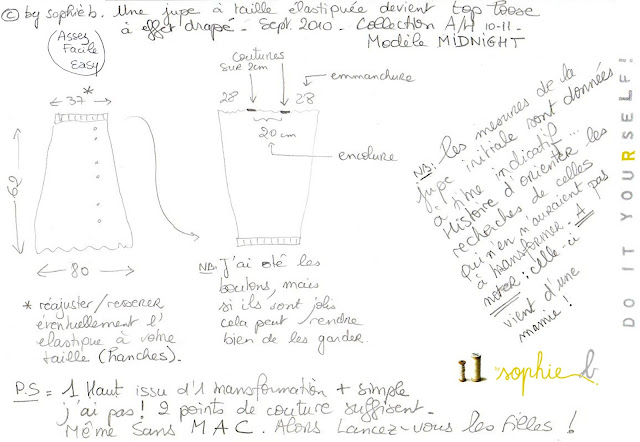 © by sophie b. Une jupe à taille elastiquée devient top loose
à effet drapé - Sept. 2010. Collection A/H 10-11 -
Modèle MIDNIGHT
Assez
Facile
Easy
37 *
62
80
coutures
sur 2cm
emmanchure
28
28
20 cm
encolure
* réajuster/resserrer
éventuellement l'
elastique à votre
taille (hanches).
NB: J'ai oté les
boutons, mais
si ils sont jolis
cela peut/rendre
bien de les garder.
NB: les mesures de la
jupe initiale sont données
à titre indicatif...
Histoire d'orienter les
recherches de celles
qui n'en n'auraient pas
à transformer. A
noter: celle-ci
vient d'une
mamie!
DO IT YOURSELF!
by sophie b.
P.S = 1 Haut issu d'1 transformation + simple
j'ai pas! 2 points de couture suffisent.
Même Sans MAC. Alors Lancez-vous les filles!